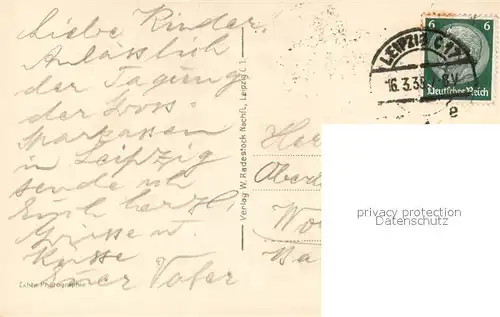 Liebe Kinder.
Anlässlich
der Tagung
der
Sparkassen
in Leipzig
sende ich
Euch herzl.
Grüsse u.
Küsse
Euer Vater
Echte Photographie
Verlag W. Radestock Nachfl., Leipzig C 1
LEIPZIG C
16.3.3
6
Deutsches Reich
e
Her
Oberd
Wo
Ba
privacy protection
Datenschutz